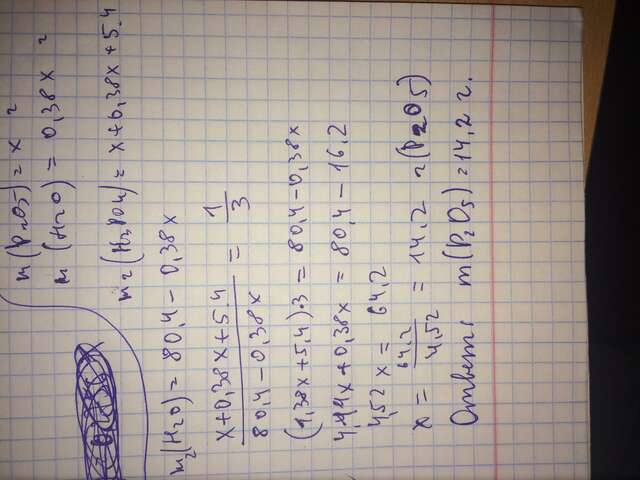 m(P₂O₅) = x г
m(H₂O) = 0,38x г
m₂(H₃PO₄) = x+0,38x+5.4
m₂(H₂O) = 80,4 - 0,38x
x+0,38x+5.4 / 80,4-0,38x = 1/3
(1,38x+5,4)·3 = 80,4-0,38x
4,14x+0,38x = 80,4 - 16,2
4,52x = 64,2
x = 64,2 / 4,52 = 14,2 г (P₂O₅)
Ответ: m(P₂O₅)=14,2 г.